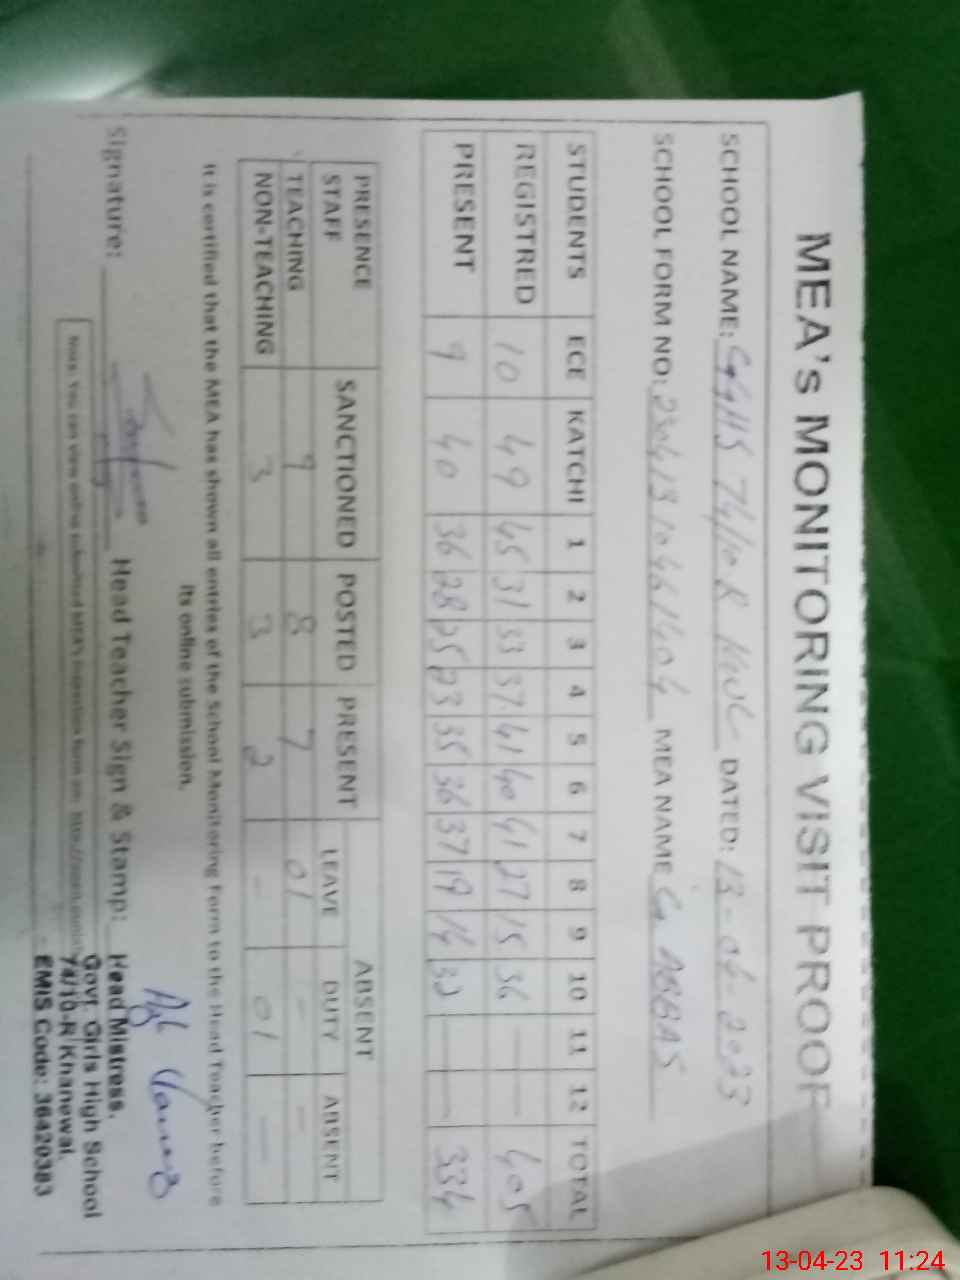 MEA's MONITORING VISIT PROOF
SCHOOL NAME: GGHS 74/10-R KWL DATED: 13-04-2023
SCHOOL FORM NO: MEA NAME ABBAS
STUDENTS ECE KATCHI 1 2 3 4 5 6 7 8 9 10 11 12 TOTAL
REGISTRED 10 49 45 31 33 37 41 40 41 27 15 36 — — 405
PRESENT 9 40 36 28 25 23 35 36 37 19 14 32 — — 334
PRESENCE STAFF SANCTIONED POSTED PRESENT ABSENT
LEAVE DUTY ABSENT
TEACHING 9 8 7 01 - -
NON-TEACHING 3 3 2 - 01 —
It is certified that the MEA has shown all entries of the School Monitoring Form to the Head Teacher before
its online submission.
Signature: Head Teacher Sign & Stamp:
Head Mistress.
Govt. Girls High School
74/10-R Khanewal.
EMIS Code: 36420383
Note: You can view online submitted MEA's inspection form on:
13-04-23 11:24